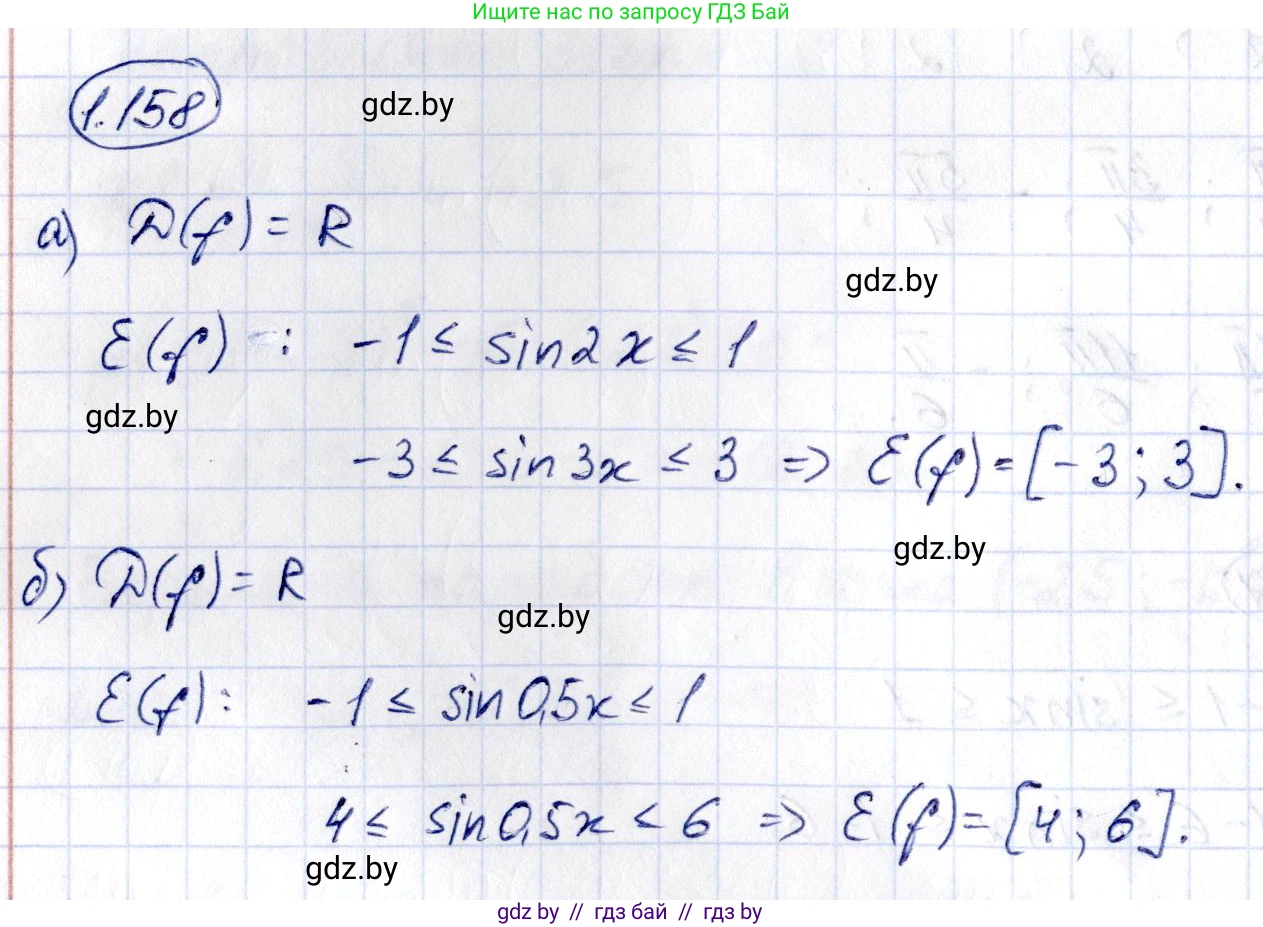 Ищите нас по запросу ГДЗ Бай
1.158
gdz.by
а) D(f) = R
gdz.by
E(f) : -1 ≤ sin2x ≤ 1
gdz.by
-3 ≤ sin3x ≤ 3 => E(f) = [-3; 3].
gdz.by
б) D(f) = R
gdz.by
E(f): -1 ≤ sin0,5x ≤ 1
4 ≤ sin0,5x ≤ 6 => E(f) = [4; 6].
gdz.by
gdz by // гдз бай // гдз by